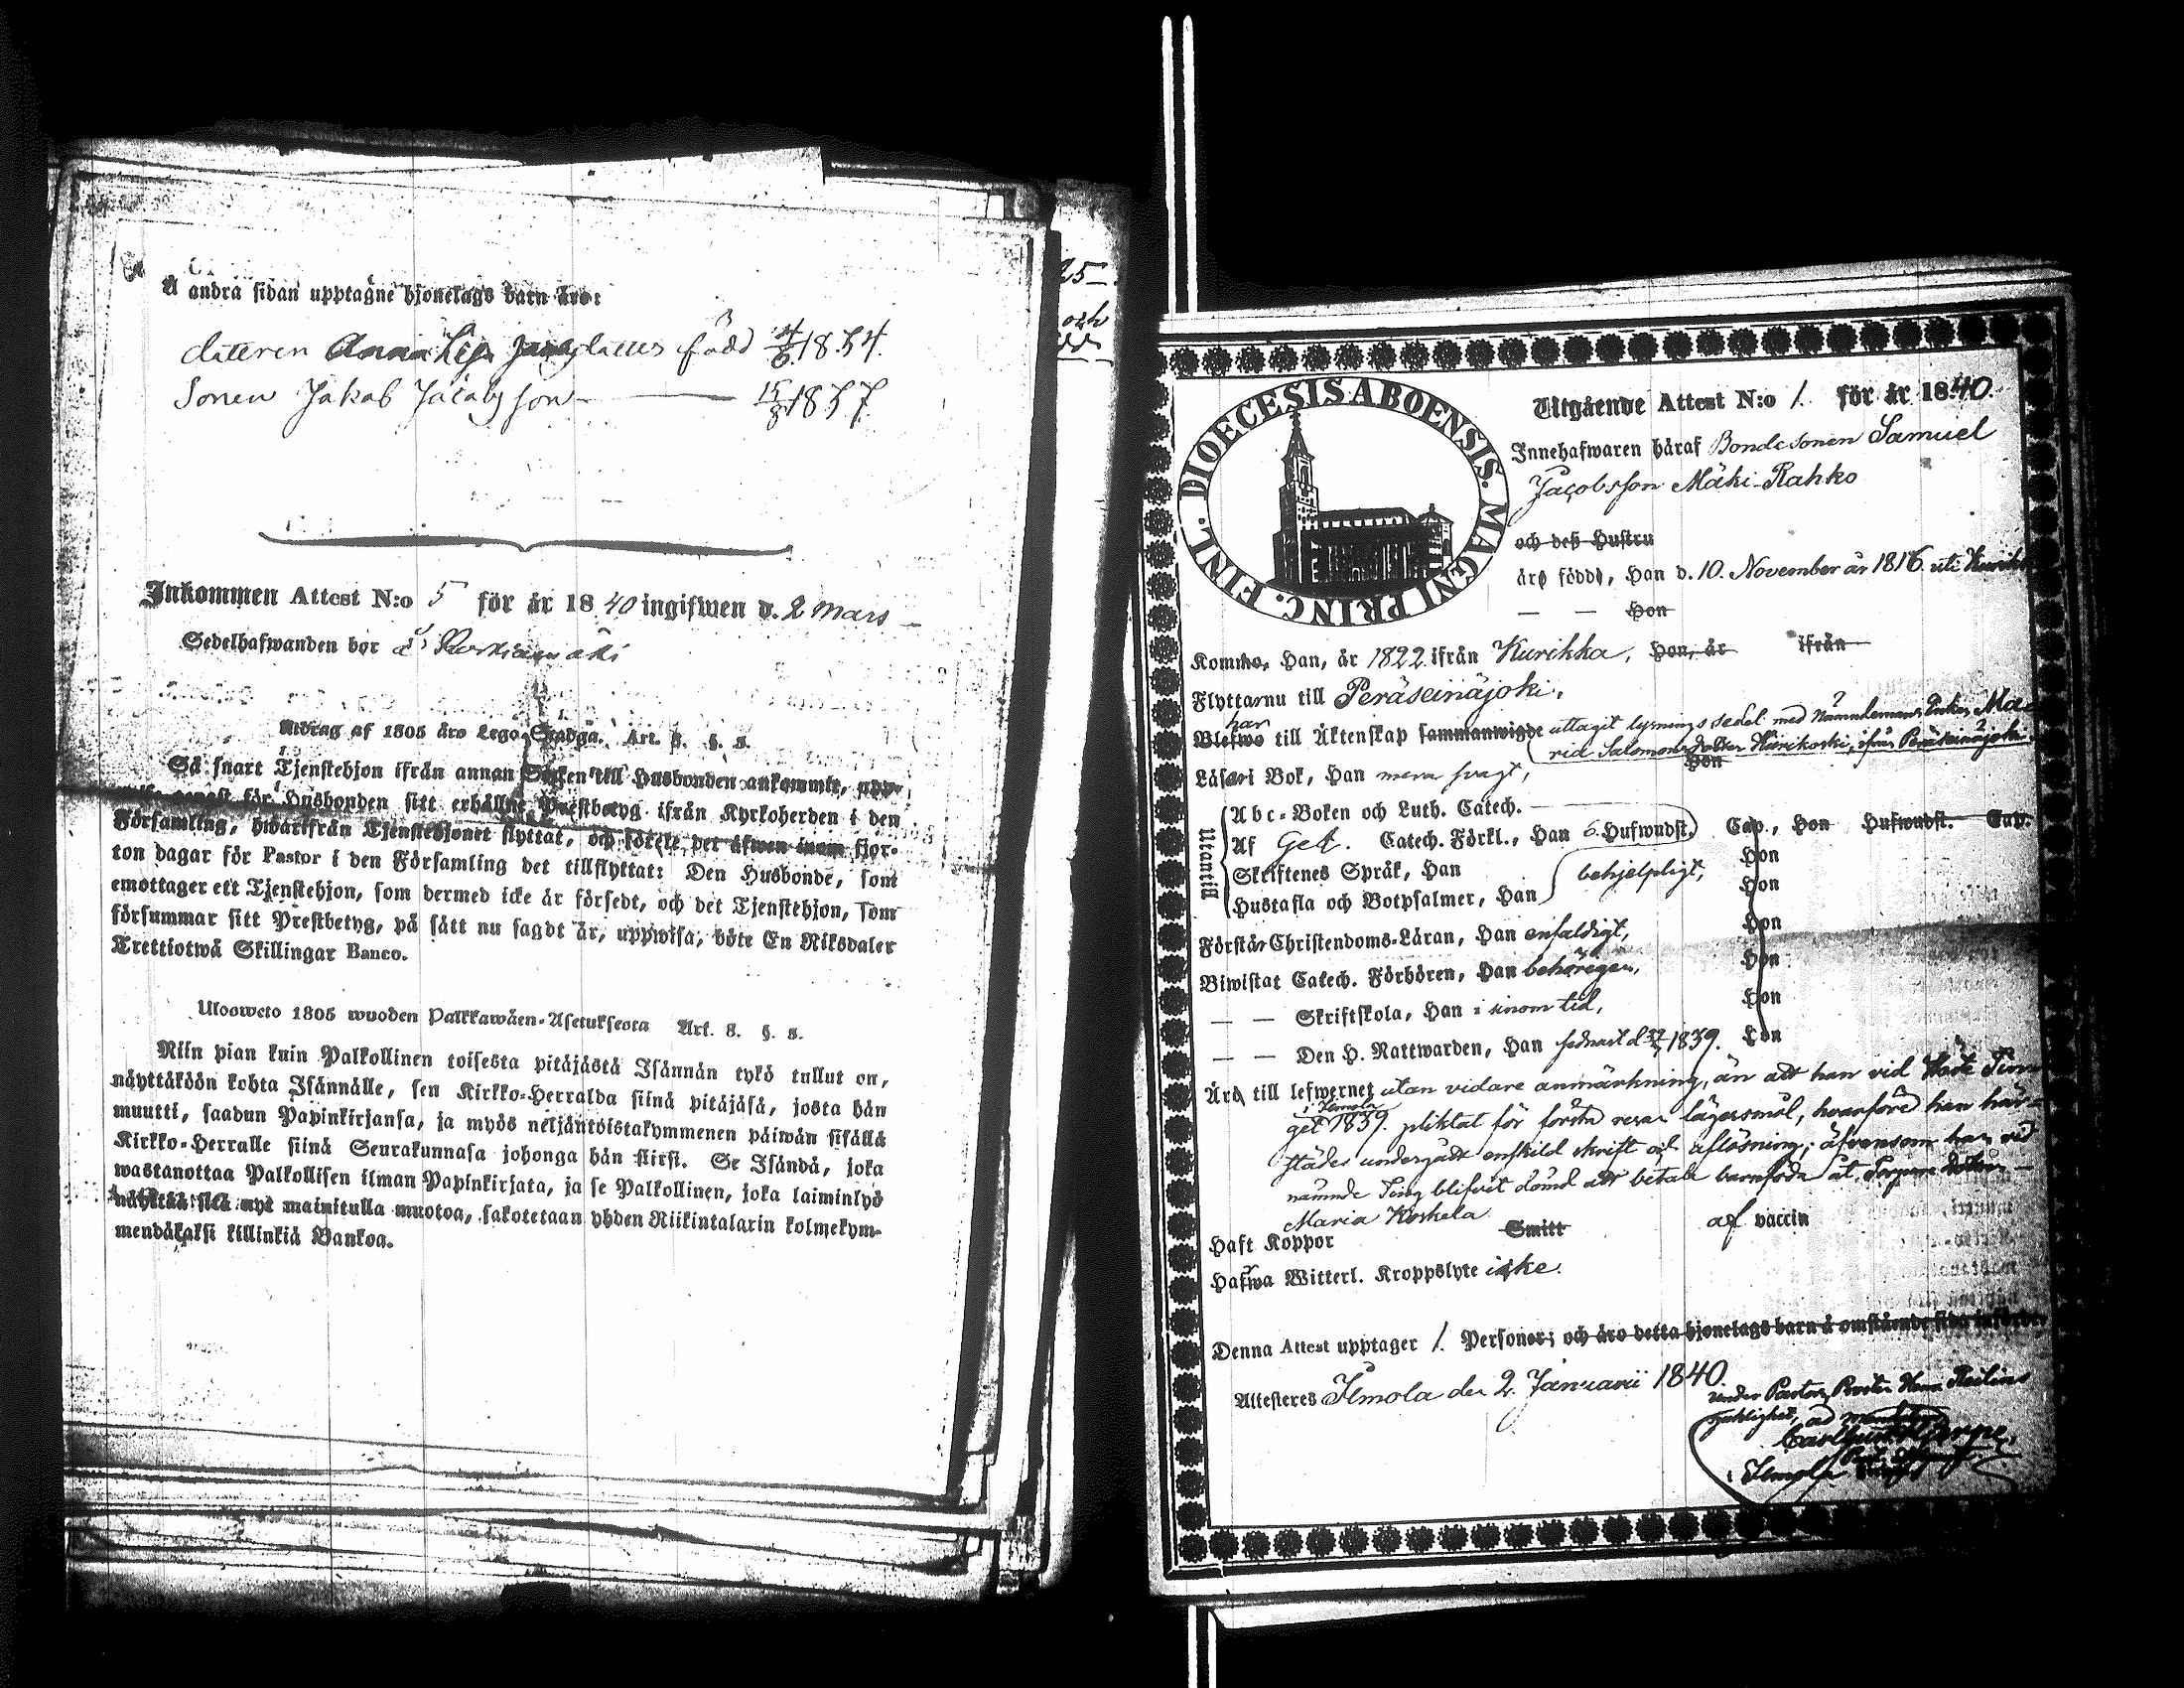 Å andra sidan upptagne hjonelags barn äro:
dåteren Anna född 4/6 1834.
Sonen Jakob Jacobsson 15/8 1837
Inkommen Attest N:o 5 för år 1840 ingifwen d. 2 Mars
Sedelhafwanden bor å
Utdrag af 1805 års Lego-Stadga. Art. 8. §. 8.
Så snart Tjenstehjon ifrån annan Socken till Husbonden ankommit,
för Husbonden sitt erhållne Prestbetyg ifrån Kyrkoherden i den
Församling, hwarifrån Tjenstehjonet flyttat, och förete det äfwen inom fjor-
ton dagar för Pastor i den Församling det tillflyttat: Den Husbonde, som
emottager ett Tjenstehjon, som dermed icke är försedt, och det Tjenstehjon, som
försummar sitt Prestbetyg, på sätt nu sagdt är, uppwisa, böte En Riksdaler
Trettiotwå Skillingar Banco.
Ulosweto 1805 wuoden Palkkawäen-Asetuksesta Art. 8. §. 8.
Niin pian kuin Palkollinen toisesta pitäjästä Isännän tykö tullut on,
näyttäköön kohta Isännälle, sen Kirkko-Herralda siinä pitäjäsä, josta hän
muutti, saadun Papinkirjansa, ja myös neljäntoistakymmenen päiwän sisällä
Kirkko-Herralle siinä Seurakunnasa johonga hän siirsi. Se Isändä, joka
wastanottaa Palkollisen ilman Papinkirjata, ja se Palkollinen, joka laiminlyö
näyttää sitä nyt mainitulla muotoa, sakotetaan yhden Riikintalarin kolmekym-
mendäkaksi killinkiä Bankoa.
25
och
DIOECESIS ABOENSIS. MAGNI PRINC. FINL.
Utgående Attest N:o 1. för år 1840.
Innehafwaren häraf Bondesonen Samuel
Jacobsson Mäki-Rahko
och deß Hustru
äro född, Han d. 10. November år 1816. uti
— — Hon
Komne, Han, år 1822 ifrån Kurikka, Hon, år ifrån
Flyttar nu till Peräseinäjoki,
har
Blefwo till Äktenskap sammanwigde uttagit lysningssedel med Nämndemans Enkan Ma-
ria Salomonsdotter Kurikoski, ifrån Peräseinäjoki.
Läser i Bok, Han mera svagt, Hon
Utantill
Abc-Boken och Luth. Catech.
Af Get. Catech. Förkl., Han 6. Hufwudst. Cap., Hon Hufwudst. Cap.
Skriftenes Språk, Han behjelpligt, Hon
Hustafla och Botpsalmer, Han Hon
Förstår Christendoms-Läran, Han enfaldigt, Hon
Biwistat Catech. Förhören, Han behörigen, Hon
— — Skriftskola, Han i sinom tid, Hon
— — Den H. Nattwarden, Han sednast d. 1839. Hon
Är till lefwernet utan vidare anmärkning, än att han vid
get 1839. pliktat för första resan lägersmål, hvarföre han här-
städes undergådt enskild skrift och aflösning; äfvensom han vid
nämnde Ting blifvit dömd att betala barnföda åt
Maria Koskela
Haft Koppor Smitt af vaccin
Hafwa Witterl. Kroppslyte icke.
Denna Attest upptager 1. Personer; och äro detta hjonelags barn å omstående sida införde.
Attesteras Ilmola den 2. Januarii 1840.
ad mandatum
Ilmola